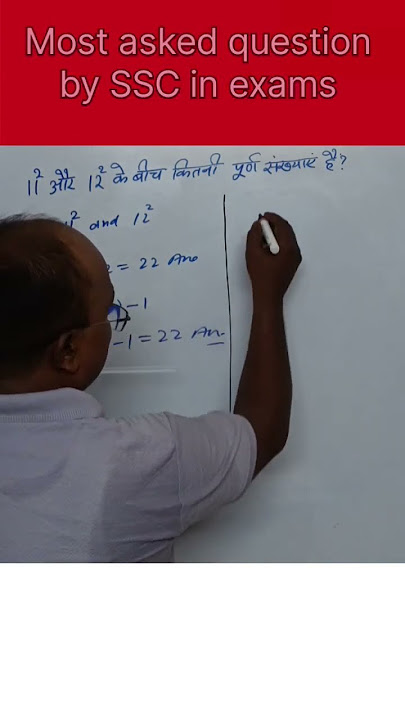 Most asked question
by SSC in exams
11² और 12² के बीच कितनी पूर्ण संख्याएं है?
² and 12²
= 22 Ans
) - 1
- 1 = 22 Ans.